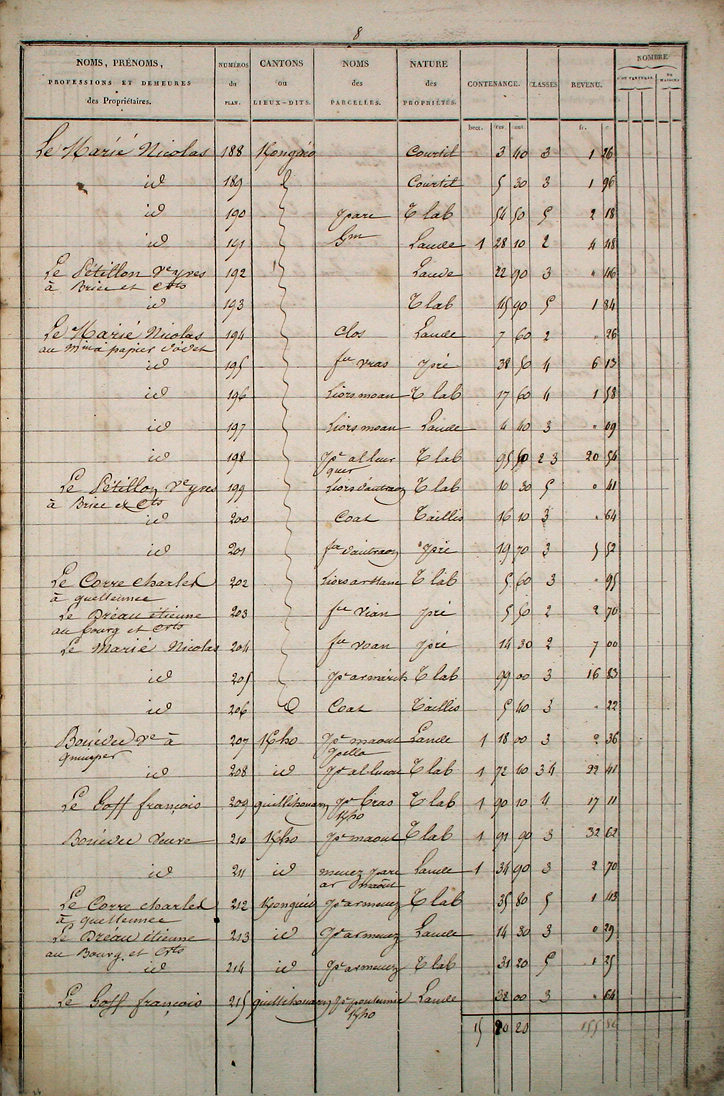 8
NOMS, PRÉNOMS, PROFESSIONS ET DEMEURES des Propriétaires. NUMÉROS du PLAN. CANTONS ou LIEUX-DITS. NOMS des PARCELLES. NATURE des PROPRIÉTÉS. CONTENANCE. CLASSES. REVENU. NOMBRE
hect. ares. cent. fr. c.
Le Marié Nicolas 188 Konguéo Courtil 3 40 3 1 26
id 189 Courtil 5 30 3 1 96
id 190 parc T lab 54 50 5 2 18
id 191 Gm Lande 1 28 10 2 4 48
Le Pétillon Ve yves 192 Lande 22 90 3 " 46
à Briec et Cts
id 193 T lab 45 90 5 1 84
Le Marié Nicolas 194 clos Lande 7 60 2 " 26
au Min à papier d'odet
id 195 fn vras pré 38 50 4 6 15
id 196 Liorsmoan T lab 17 60 4 1 58
id 197 Liorsmoan Lande 4 40 3 " 09
id 198 pc alleur T lab 95 50 2 3 20 54
guer
Le Pétillon Ve yves 199 Liors dautraon T lab 10 30 5 " 41
à Briec et Cts
id 200 Coat Taillis 16 10 3 " 64
id 201 fn dautraon pré 19 70 3 5 52
Le Corre charles 202 T lab 5 60 3 " 95
à quellennec
Le Bréau étienne 203 fn vian pré 5 50 2 2 70
au bourg et Cts
Le Marié Nicolas 204 fn voan pré 14 30 2 7 00
id 205 T lab 99 00 3 16 83
id 206 Coat Taillis 5 40 3 " 22
Bouédec Ve à 207 Kho pc maout Lande 1 18 00 3 2 36
quimper
id 208 id T lab 1 72 40 3 4 22 41
Le Goff françois 209 quillihouarn pc bras T lab 1 90 10 4 17 11
Kho
Bouédec Veuve 210 Kho pc maout T lab 1 91 90 3 32 62
id 211 id menez parc Lande 1 34 90 3 2 70
ar maout
Le Corre charles 212 Konguéo pc armenez T lab 35 80 5 1 43
à quellennec
Le Bréau étienne 213 id pc armenez Lande 14 30 3 0 29
au Bourg et Cts
id 214 id pc armenez T lab 31 20 5 1 25
Le Goff françois 215 quillihouarn Lande 32 00 3 " 64
Kho
15 20 20 155